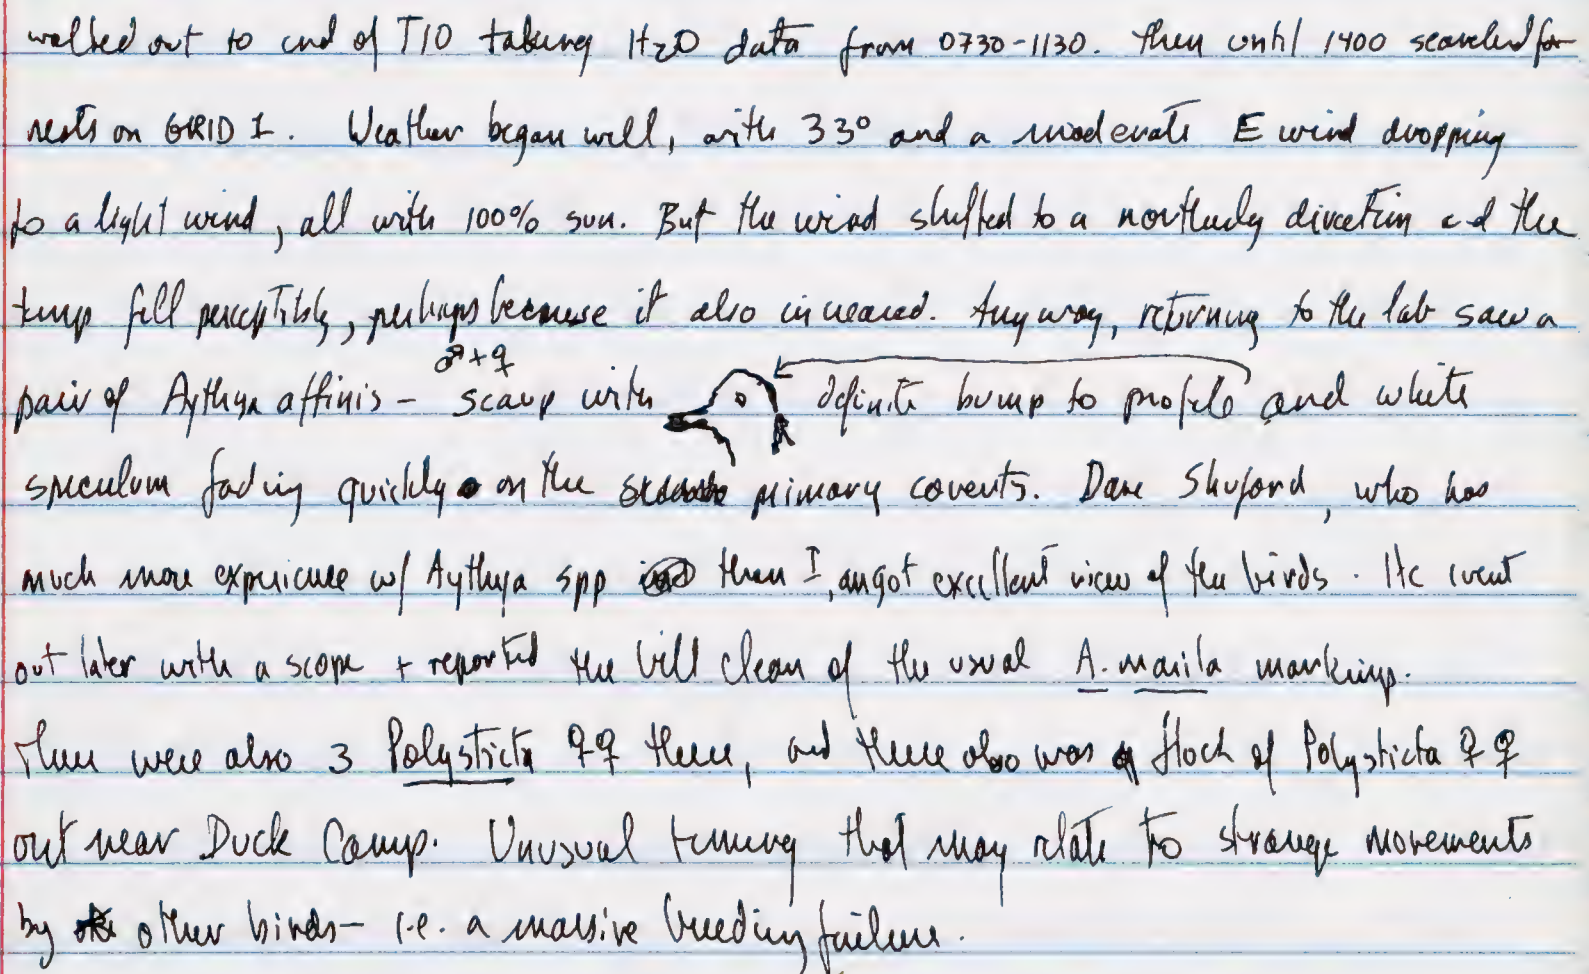 walked out to end of T10 taking H2O data from 0730-1130. Then until 1400 searched for
nests on GRID 1. Weather began well, with 33° and a moderate E wind dropping
to a light wind, all with 100% sun. But the wind shifted to a northerly direction and the
temp fell perceptibly, perhaps because it also increased. Anyway, returning to the lab saw a
♂+♀
pair of Aythya affinis - scaup with definite bump to profile and white
speculum fading quickly on the primary coverts. Dave Shuford, who has
much more experience w/ Aythya spp than I, got excellent view of the birds. He went
out later with a scope + reported the bill clean of the usual A. marila markings.
There were also 3 Polysticta ♀♀ there, and there also was a flock of Polysticta ♀♀
out near Duck Camp. Unusual timing that may relate to strange movements
by other birds - i.e. a massive breeding failure.